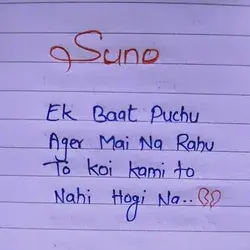 Suno
Ek Baat Puchu
Ager Mai Na Rahu
To koi kami to
Nahi Hogi Na..